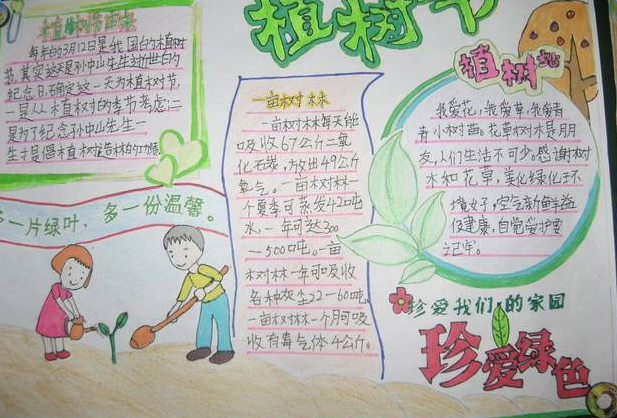 植树节
植树节的由来
每年的3月12日是我国的植树
节,其实这天是孙中山先生逝世的
纪念日,确定这一天为植树节,
一是从植树的季节考虑;二
是为了纪念孙中山先生一
生才是倡植树造林的功绩
多一片绿叶,多一份温馨。
一亩树林
一亩树林每天能
吸收67公斤二氧
化石炭,放出49公斤
氧气。一亩树林一
个夏季可蒸发42吨
水,一年可达300
—500吨。一亩
树林一年可吸收
各种灰尘22—60吨
一亩树林一个月可吸
收有毒气体4公斤。
植树
我爱花,我爱草,我爱青
青小树苗。花草树木是朋
友,人们生活不可少。感谢树
木和花草,美化绿化
境女子,空气新鲜益
健康,自觉爱护要
记牢。
珍爱我们的家园
珍爱绿色